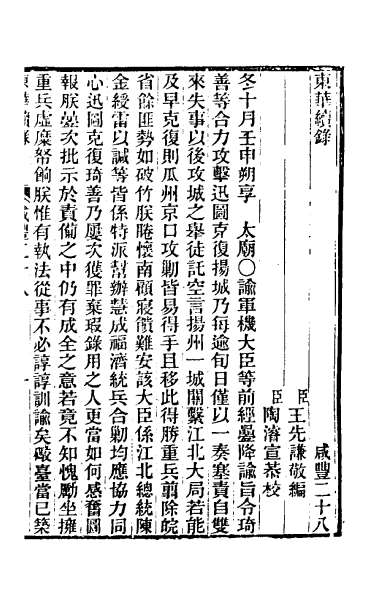 東華續錄
咸豐二十八
臣王先謙敬編
臣陶濬宣恭校
冬十月壬申朔享 太廟○諭軍機大臣等前經疊降諭旨令琦
善等合力攻擊迅圖克復揚城乃每逾旬日僅以一奏塞責自雙
來失事以後攻城之舉徒託空言揚州一城關繫江北大局若能
及早克復則瓜州京口攻勦皆易得手且移此得勝重兵翦除皖
省餘匪勢如破竹朕睠懷南顧寢饋難安該大臣係江北總統陳
金綬雷以諴等皆係特派幫辦慧成福濟統兵合勦均應協力同
心迅圖克復琦善乃屢次獲罪棄瑕錄用之人更當如何感奮圖
報朕屢次批示於責備之中仍有成全之意若竟不知愧勵坐擁
重兵虛糜帑餉朕惟有執法從事不必諄諄訓諭矣礮臺當已築
東華續錄 咸豐二十八 一